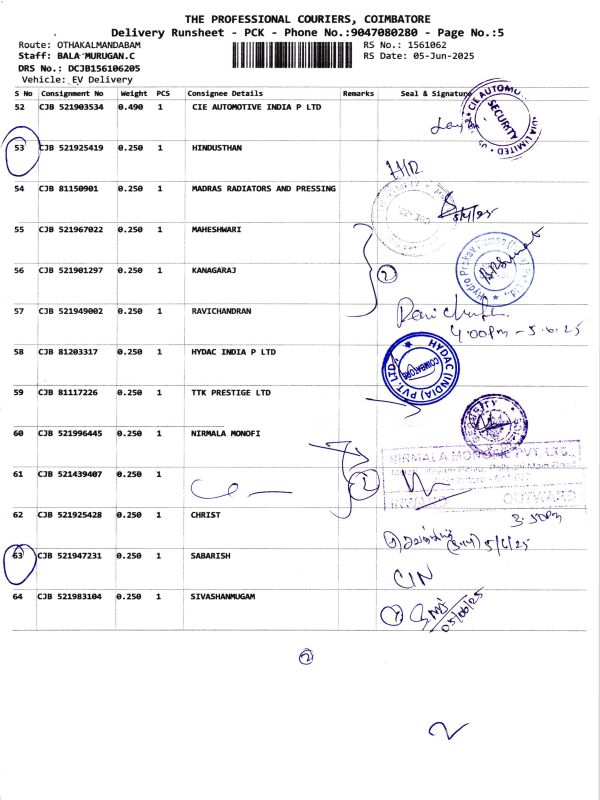 THE PROFESSIONAL COURIERS, COIMBATORE
Delivery Runsheet - PCK - Phone No.:9047080280 - Page No.:5
Route: OTHAKALMANDABAM RS No.: 1561062
Staff: BALA MURUGAN.C RS Date: 05-Jun-2025
DRS No.: DCJB156106205
Vehicle: EV Delivery
S No Consignment No Weight PCS Consignee Details Remarks Seal & Signature
52 CJB 521903534 0.490 1 CIE AUTOMOTIVE INDIA P LTD
SECURITY
53 CJB 521925419 0.250 1 HINDUSTHAN
54 CJB 81150901 0.250 1 MADRAS RADIATORS AND PRESSING
55 CJB 521967022 0.250 1 MAHESHWARI
56 CJB 521901297 0.250 1 KANAGARAJ
2
57 CJB 521949002 0.250 1 RAVICHANDRAN
4:00pm - 5.6.25
58 CJB 81203317 0.250 1 HYDAC INDIA P LTD
HYDAC (INDIA) PVT. LTD. COIMBATORE
59 CJB 81117226 0.250 1 TTK PRESTIGE LTD
60 CJB 521996445 0.250 1 NIRMALA MONOFI
61 CJB 521439407 0.250 1
OUTWARD
62 CJB 521925428 0.250 1 CHRIST
3.50pm
5/6/25
63 CJB 521947231 0.250 1 SABARISH
64 CJB 521983104 0.250 1 SIVASHANMUGAM
05/06/25
2
2